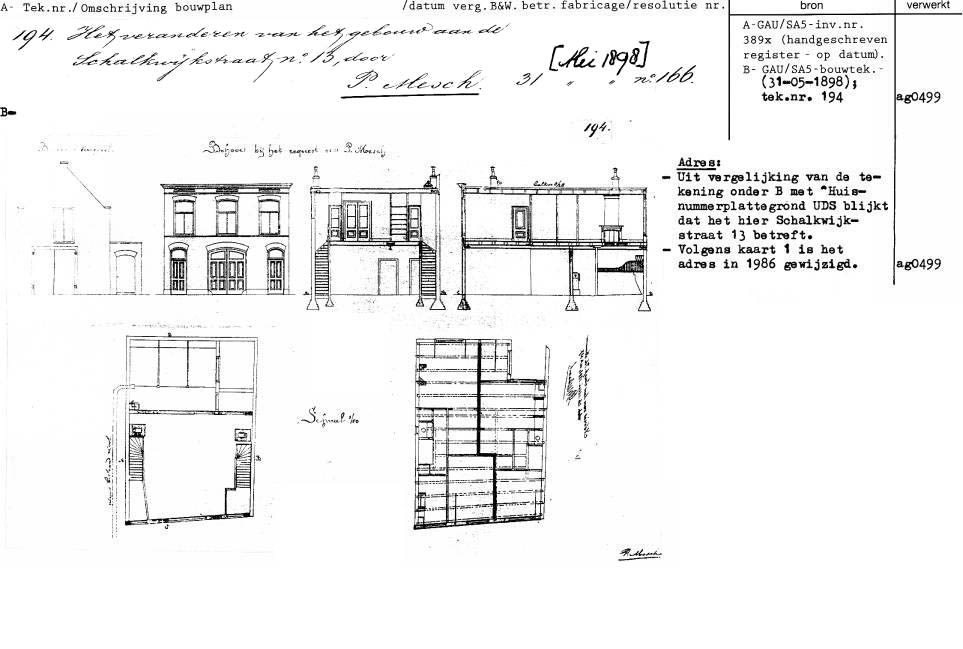 A- Tek.nr./ Omschrijving bouwplan /datum verg. B&W. betr. fabricage/resolutie nr. bron verwerkt
194. Het veranderen van het gebouw aan de
Schalkwijkstraat, no. 13, door
P. Mesch.
[Mei 1898]
31 " " no. 166.
A-GAU/SA5-inv.nr.
389x (handgeschreven
register - op datum).
B- GAU/SA5-bouwtek.-
(31-05-1898);
tek.nr. 194 ag0499
B-
194.
Behoort bij het request van P. Mesch
Adres:
- Uit vergelijking van de te-
kening onder B met "Huis-
nummerplattegrond UDS blijkt
dat het hier Schalkwijk-
straat 13 betreft.
- Volgens kaart 1 is het
adres in 1986 gewijzigd. ag0499
Schaal
P. Mesch